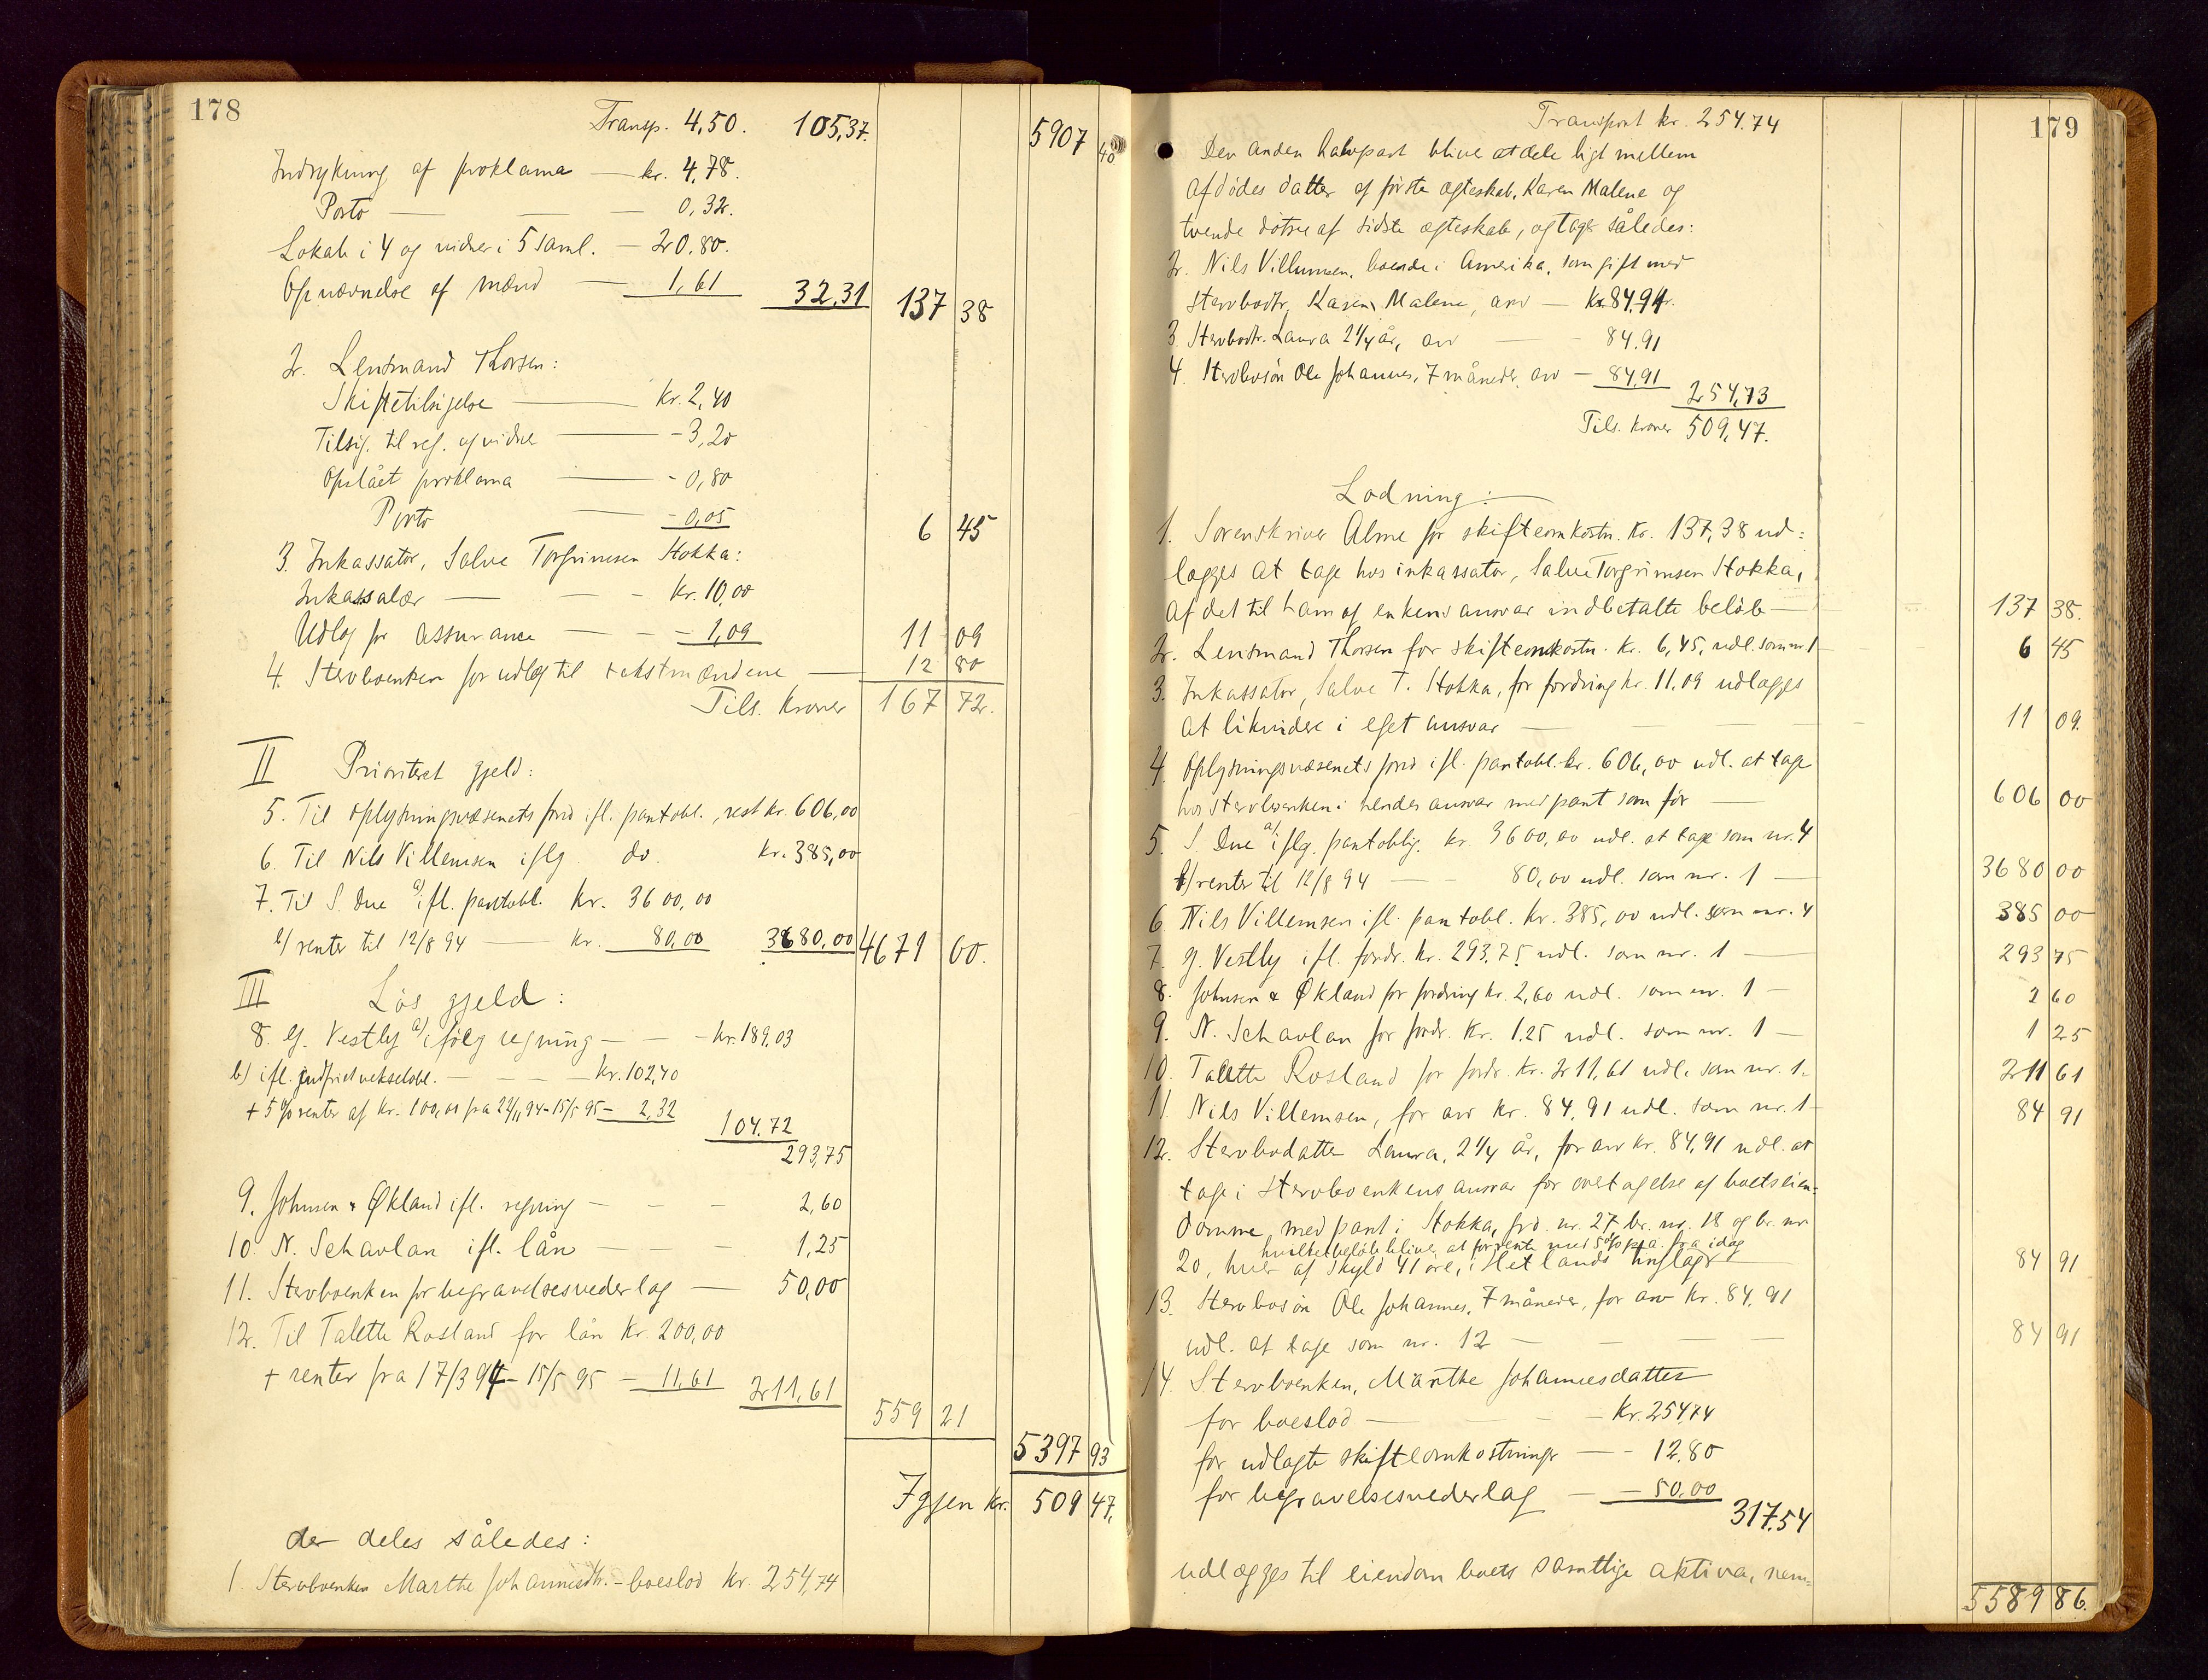 178
Transp. 4,50. 105,37.
5907 40
Indrykning af proklama — kr. 4,78.
Porto — — — 0,32.
Lokale i 4 og vidner i 5 saml. — 20,80.
Opnævnelse af mænd — 1,61 32,31 137 38
2. Lensmand Thorsen:
Skiftetilsigelse — kr. 2,40
Tilsig. til reg. og vidner — - 3,20
Opslået proklama — - 0,80
Porto — - 0,05 6 45
3. Inkassator, Salve Torgrimsen Stokka:
Inkassalær — — - kr. 10,00
Udlæg for assurance — - - 1,09 11 09
4. Stervboenken for udlæg til takstmændene — 12 80
Tils. kroner 167 72.
II Prioritet gjeld:
5. Til oplysningsvæsenets fond ifl. pantobl., rest kr. 606,00
6. Til Nils Villemsen iflg. do. kr. 385,00
7. Til S. Due a/ ifl. pantobl. kr. 3600,00
b/ renter til 12/8 94 — kr. 80,00 3680,00 4671 00.
III Løs gjeld:
8. G. Vestly a/ ifølg regning — - - kr. 189,03
b/ ifl. indfriet vekselobl. — - - - kr. 102,40
+ 5 % renter af kr. 100,00 fra 24/11 94 - 15/5 95 - 2,32
104,72
293,75
9. Johnsen & Økland ifl. regning — — - 2,60
10. N. Schavlan ifl. lån — — - 1,25
11. Stervboenken for begravelsesvederlag — 50,00
12. Til Talette Rosland for lån kr. 200,00
+ renter fra 17/3 94 - 15/5 95 - 11,61 211,61
559 21
5397 93
Igjen kr. 509 47.
der deles således:
1. Stervboenken Marthe Johannesdtr. - boeslod kr. 254,74
179
Transport kr. 254.74
Den anden halvpart blive at dele ligt mellem
afdødes datter af første ægteskab, Karen Malene og
tvende døtre af sidste ægteskab, og tage således:
2. Nils Villumsen, boende i Amerika, som gift med
stervbodtr. Karen Malene, arv — kr. 84.91.
3. Stervbodtr. Laura 2 1/4 år, arv — - 84.91
4. Stervbosøn Ole Johannes, 7 måneder, arv — 84,91
254,73
Tils. kroner 509,47.
Lodning:
1. Sorenskriver Alme for skifteomkostn. kr. 137,38 ud:
lægges at tage hos inkassator, Salve Torgrimsen Stokka,
af det til ham af enkens ansvar indbetalte beløb — 137 38.
2. Lensmand Thorsen for skifteomkostn. kr. 6,45, udl. som nr. 1 6 45
3. Inkassator, Salve T. Stokka, for fordring kr. 11.09 udlægges
at likvidere i eget ansvar — — — 11 09.
4. Oplysningsvæsenets fond ifl. pantobl. kr. 606,00 udl. at tage
hos stervboenken i hendes ansvar med pant som før — 606 00
5. S. Due a/ iflg. pantoblig. kr. 3600,00 udl. at tage som nr. 4
b/ renter til 12/8 94 — - 80,00 udl. som nr. 1 — 3680 00
6. Nils Villemsen ifl. pantobl. kr. 385,00 udl. som nr. 4 385 00
7. G. Vestly ifl. fordr. kr. 293.75 udl. som nr. 1 — 293 75
8. Johnsen & Økland for fordring kr. 2,60 udl. som nr. 1 — 2 60
9. N. Schavlan for fordr. kr. 1.25 udl. som nr. 1 — 1 25
10. Talette Rosland for fordr. kr. 211,61 udl. som nr. 1. 211 61
11. Nils Villemsen, for arv kr. 84,91 udl. som nr. 1 - 84 91
12. Stervbodatter Laura, 2 1/4 år, for arv kr. 84,91 udl. at
tage i stervboenkens ansvar for overtagelse af boets eien-
domme med pant i Stokka, grd. nr. 27 br. nr. 18 og br. nr.
hvilket beløb blive at forrente med 5 % p. a. fra idag
20, hver af skyld 41 øre, i Hetlands tinglag — 84 91
13. Stervbosøn Ole Johannes, 7 måneder, for arv kr. 84,91
udl. at tage som nr. 12 — - — — 84 91
14. Stervboenken, Marthe Johannesdatter
for boeslod — - - kr. 254,74
for udlagte skifteomkostninger — - 12,80
for begravelsesvederlag — - 50,00
317.54
udlægges til eiendom boets samtlige aktiva, nem-
5589 86.